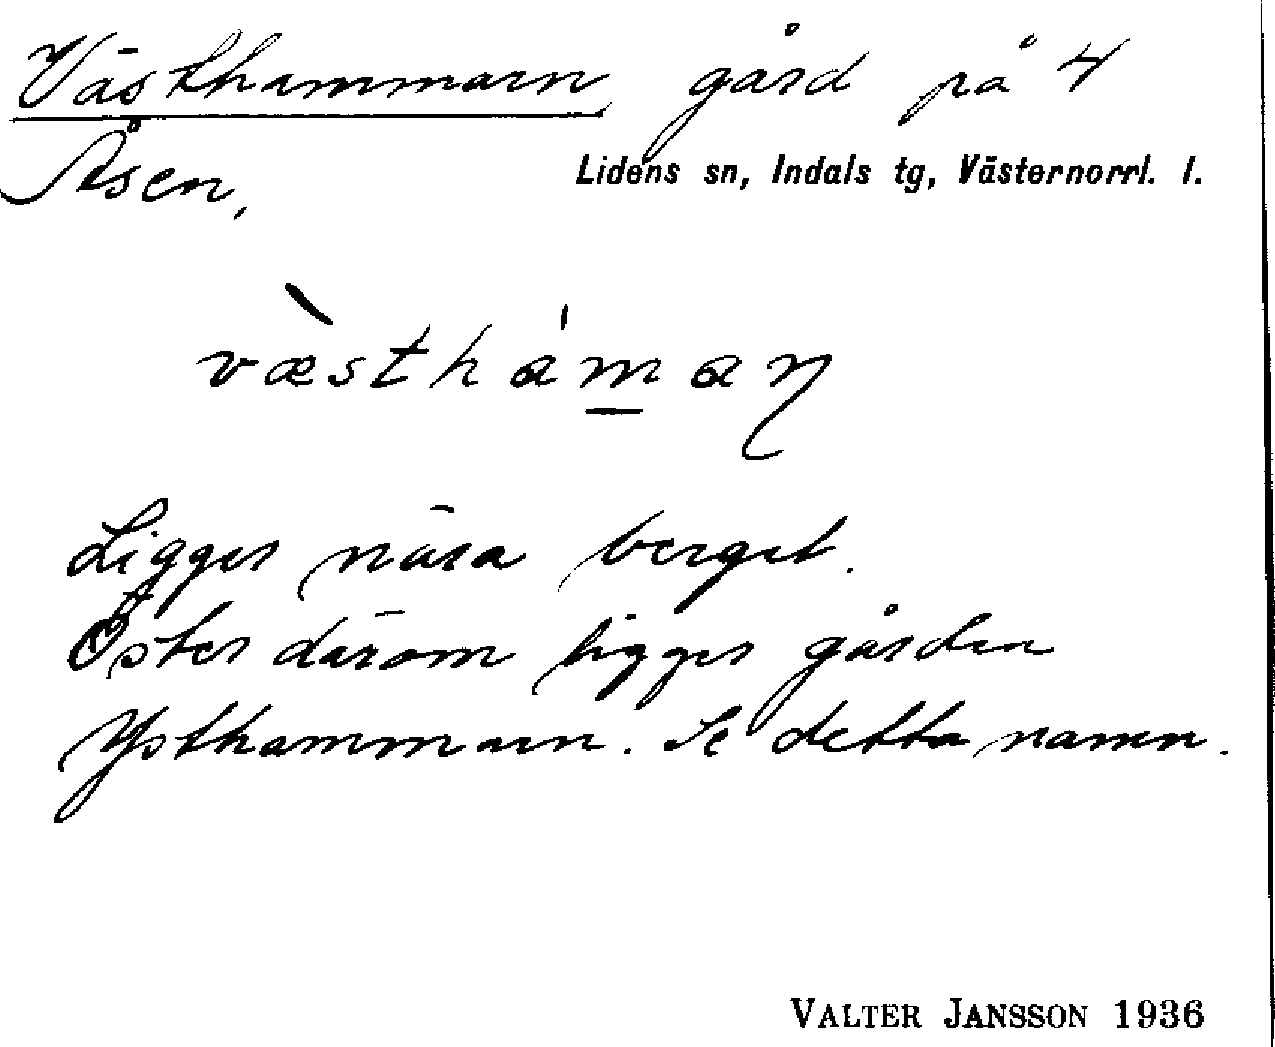 Västhammarn, gård på 4
Åsen,
Lidens sn, Indals tg, Västernorrl. l.
væ̀sthám̲aɳ
Ligger nära berget.
Öster därom ligger gården
Ysthammarn. Se detta namn.
VALTER JANSSON 1936